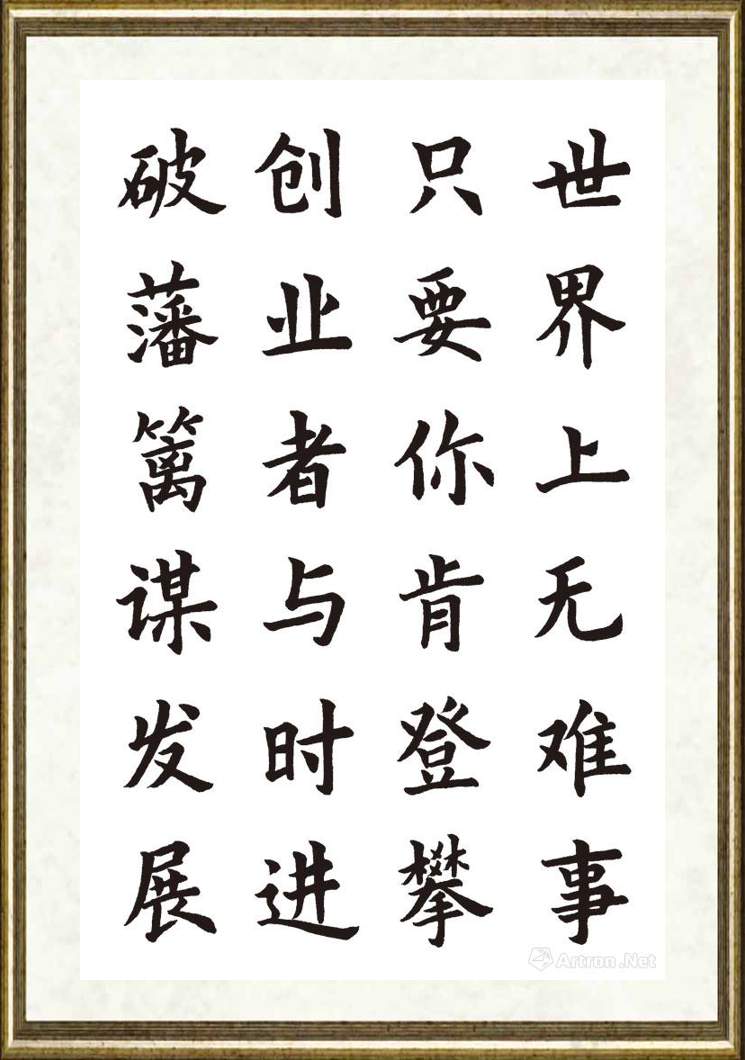 世界上无难事
只要你肯登攀
创业者与时进
破藩篱谋发展
Artron.Net